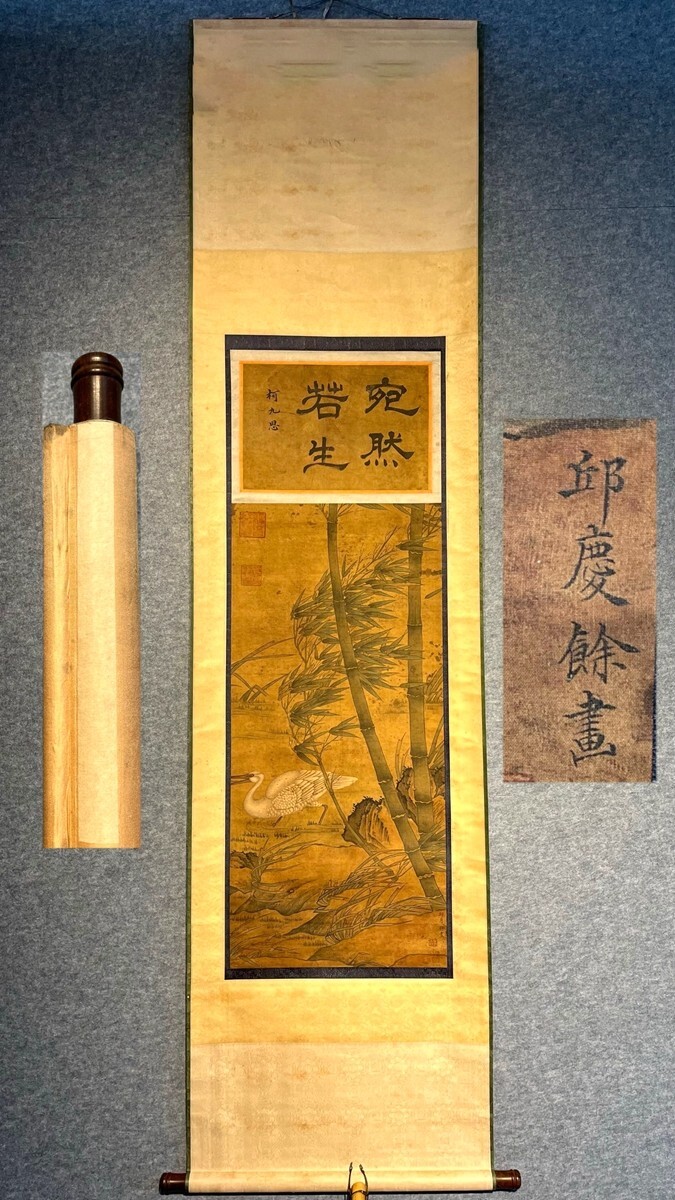 宛然
若生
柯九思
邱慶餘畫